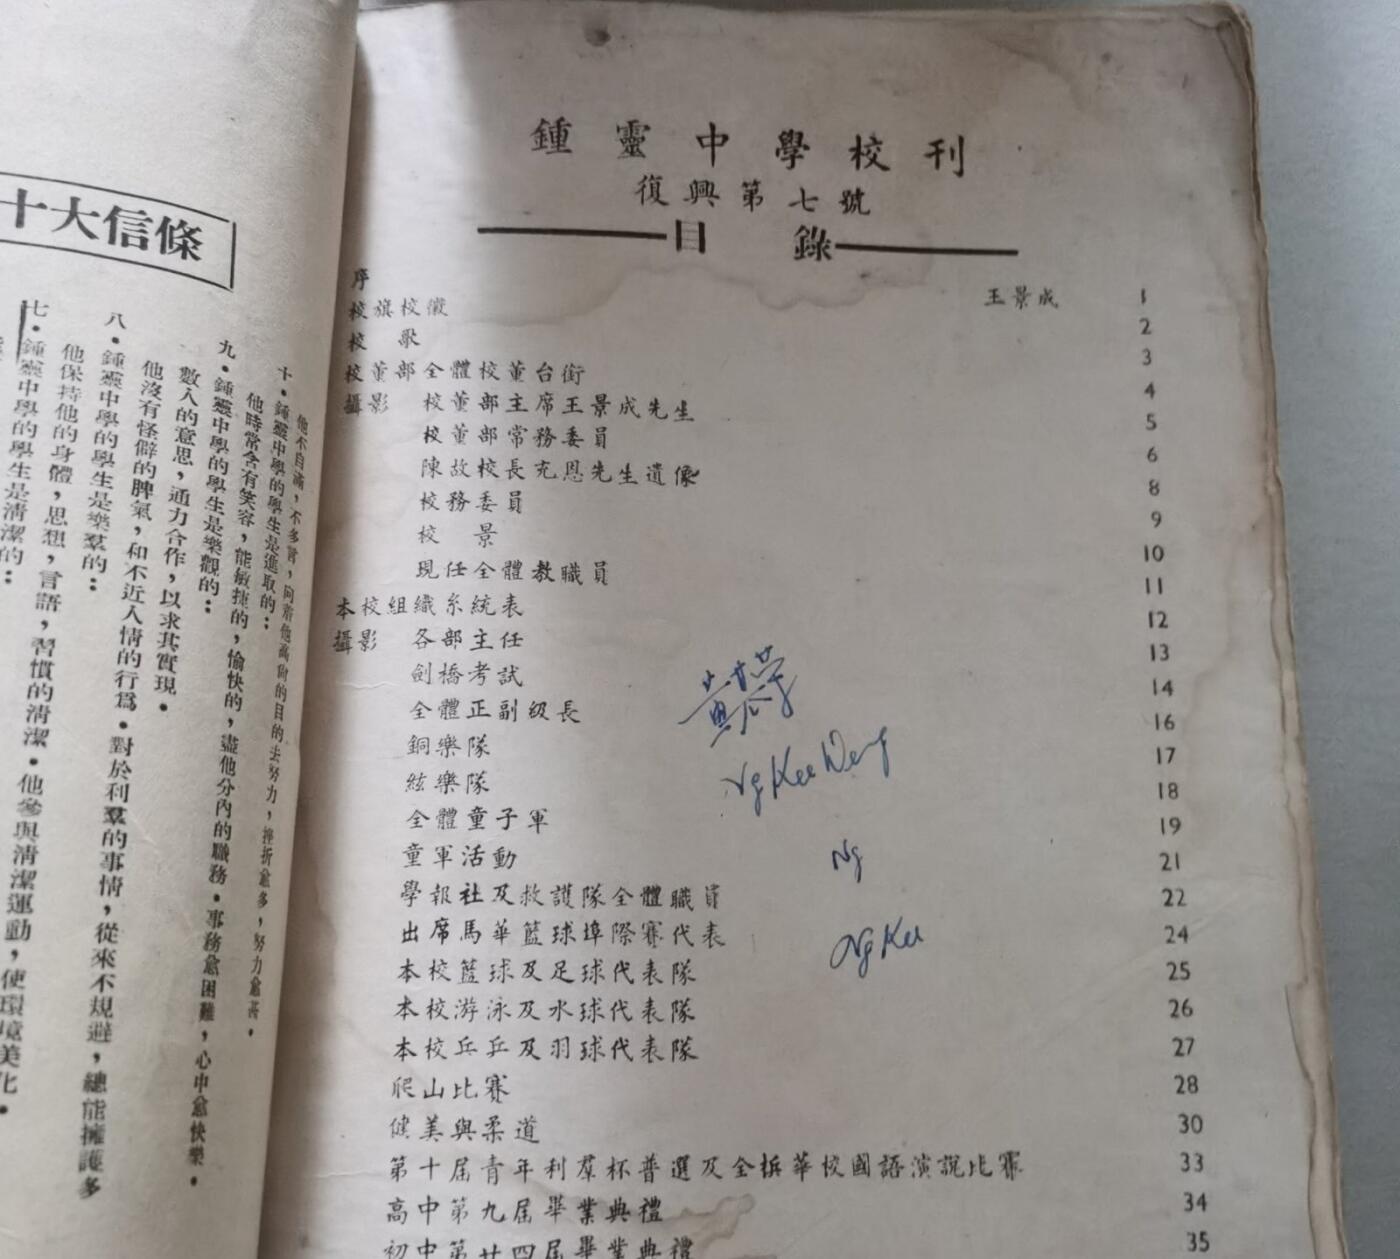 鍾靈中學校刊
復興第七號
目錄
序 王景成 1
校旗校徽 2
校歌 3
校董部全體校董台銜 4
攝影 校董部主席王景成先生 5
校董部常務委員 6
陳故校長充恩先生遺像 8
校務委員 9
校景 10
現任全體教職員 11
本校組織系統表 12
攝影 各部主任 13
劍橋考試 14
全體正副級長 16
銅樂隊 17
絃樂隊 18
全體童子軍 19
童軍活動 21
學報社及救護隊全體職員 22
出席馬華籃球埠際賽代表 24
本校籃球及足球代表隊 25
本校游泳及水球代表隊 26
本校乒乓及羽球代表隊 27
爬山比賽 28
健美與柔道 30
第十屆青年利羣杯普選及全檳華校國語演說比賽 33
高中第九屆畢業典禮 34
初中第廿四屆畢業典禮 35
Ng Kee Weng
Ng
Ng Kee
十大信條
他不自滿，不多言，向着他高尚的目的去努力，挫折愈多，努力愈甚。
十・鍾靈中學的學生是進取的：
他時常含有笑容，能敏捷的，愉快的，盡他分內的職務。事務愈困難，心中愈快樂。
九・鍾靈中學的學生是樂觀的：
數人的意思，通力合作，以求其實現。
他沒有怪僻的脾氣，和不近人情的行爲。對於利羣的事情，從來不規避，總能擁護多
八・鍾靈中學的學生是樂羣的：
他保持他的身體，思想，言語，習慣的清潔。他參與清潔運動，使環境美化。
七・鍾靈中學的學生是清潔的：